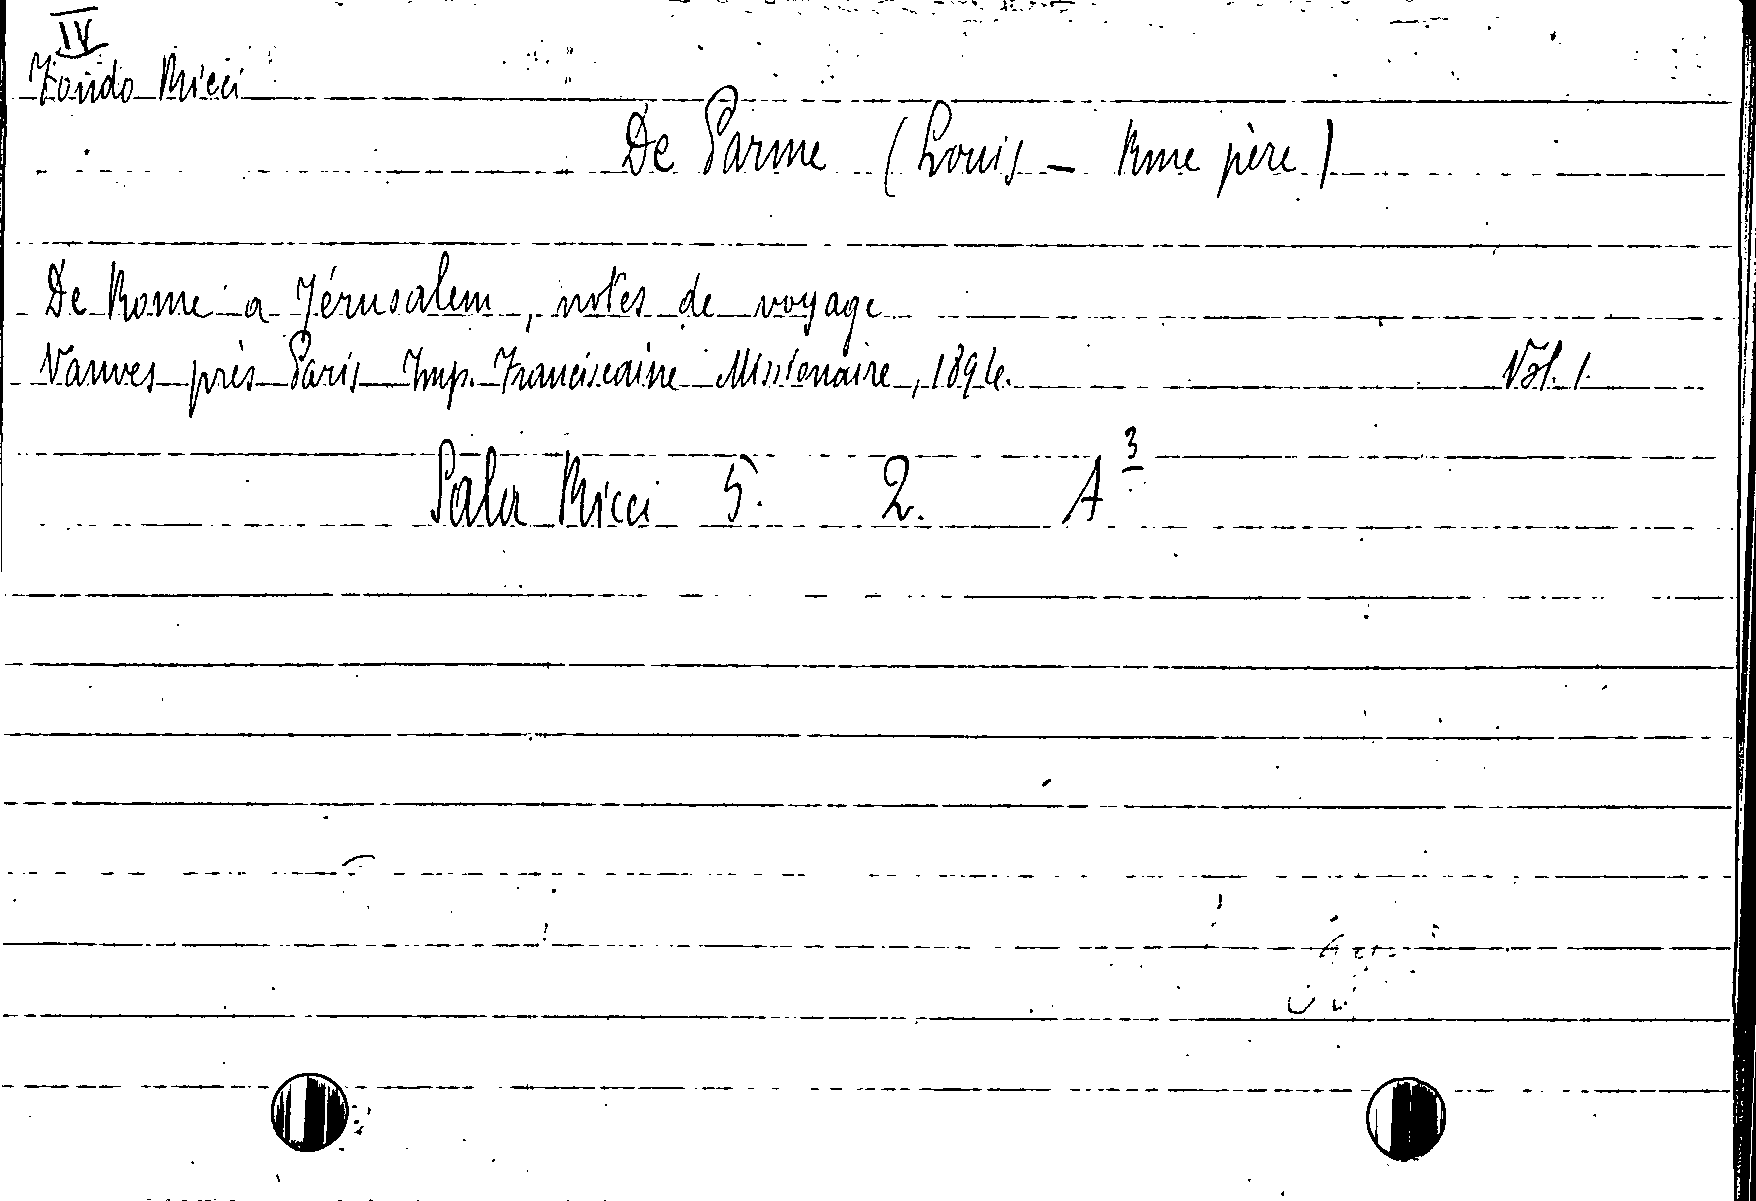 IV
Fondo Ricci
De Parme (Louis – Rme père)
De Rome a Jérusalem, notes de voyage
Vanves près Paris Imp. Franciscaine Missionaire, 1894. Vol. 1.
Sala Ricci 5. 2. A 3